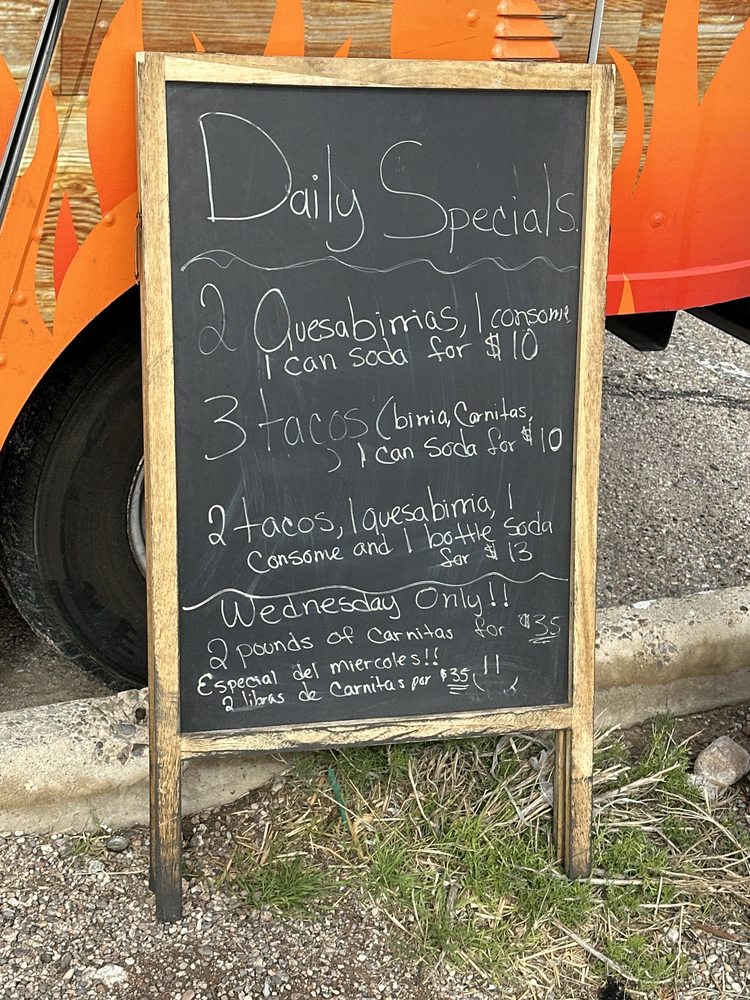 Daily Specials.
2 Quesabirrias, 1 consome
1 can soda for $10
3 tacos (birria, Carnitas,
) 1 can Soda for $10
2 tacos, 1 quesabirria, 1
Consome and 1 bottle Soda
for $13
Wednesday Only!!
2 pounds of Carnitas for $35
Especial del miercoles!!
2 libras de Carnitas por $35